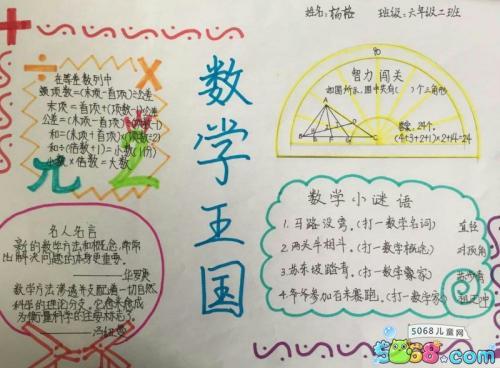 姓名:杨格 班级:六年级二班
数学王国
在等差数列中
项数=(末项-首项)÷公差
末项=首项+(项数-1)×公差
公差=(末项-首项)÷(项数-1)
和=(末项+首项)×(项数÷2)
和÷(倍数+1)=小数(1份)
小数×倍数=大数
智力闯关
如图所示,图中共有( )个三角形
A
答案:24个.
(4+3+2+1)×2+14=24
名人名言
新的数学方法和概念,常常
比解决问题的本身更重要。
——华罗庚
数学方法渗透并支配着一切自然
科学的理论分支。它愈来愈成
为衡量科学的主要标志了。
——冯纽曼
数学小谜语
1.马路没弯。(打一数学名词) 直径
2.两犬斗相斗。(打一数学概念) 对顶角
3.苏东坡踏青。(打一数学家) 苏步青
4.爷爷参加百米赛跑。(打一数学家) 祖冲
5068儿童网
5068.com